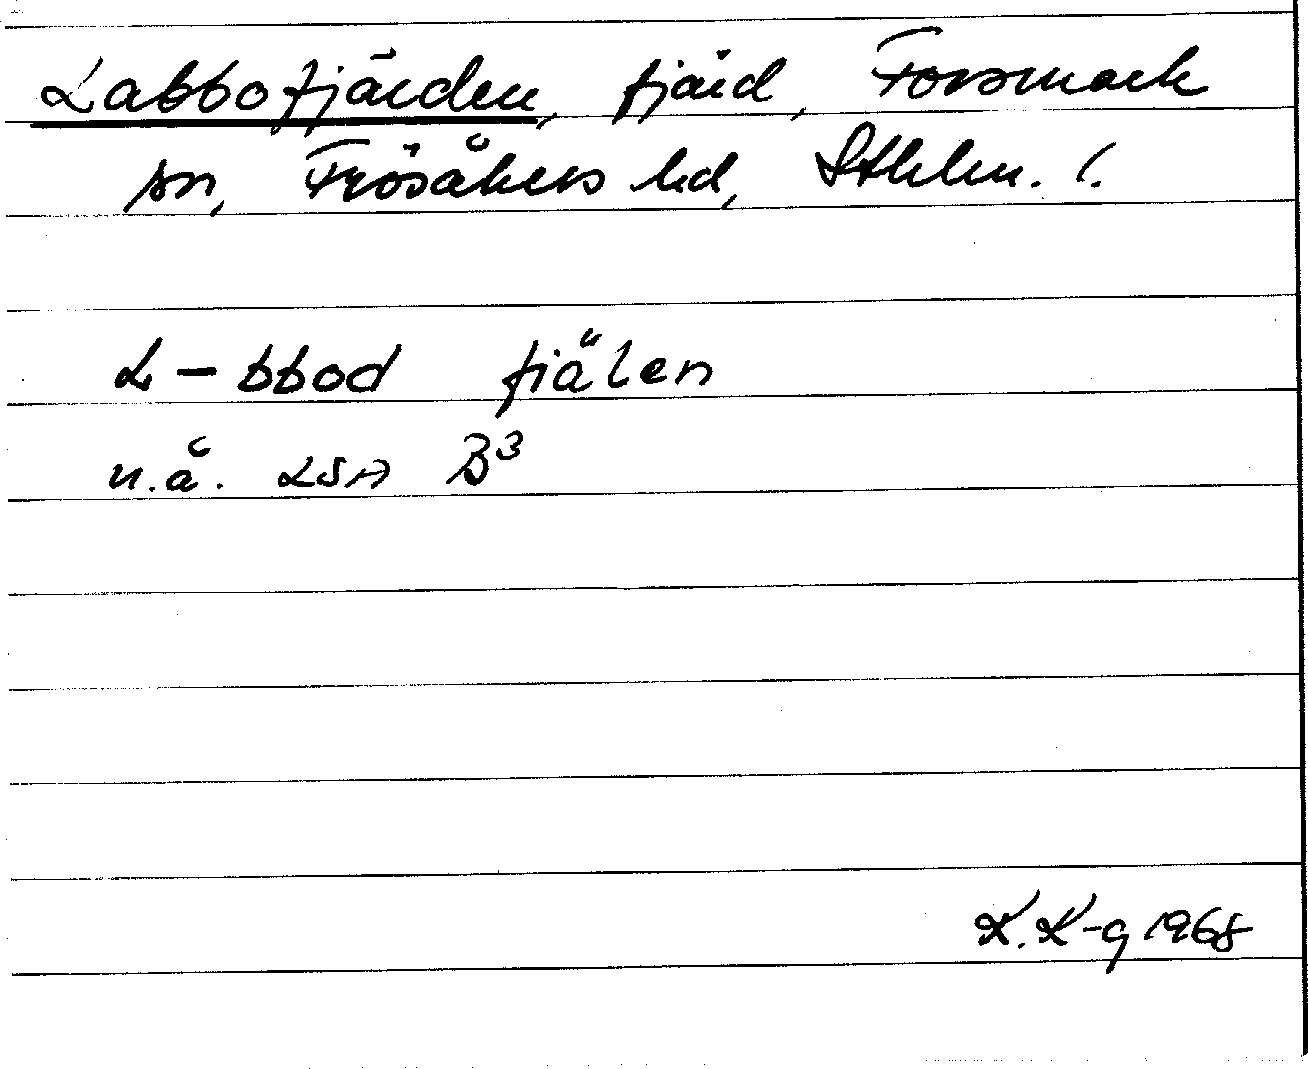 Labbofjärden, fjärd, Forsmark
sn, Frösåkers hd, Sthlm. l.
L-bbod fjälen
n.å. LSA B³
K. K-g 1968